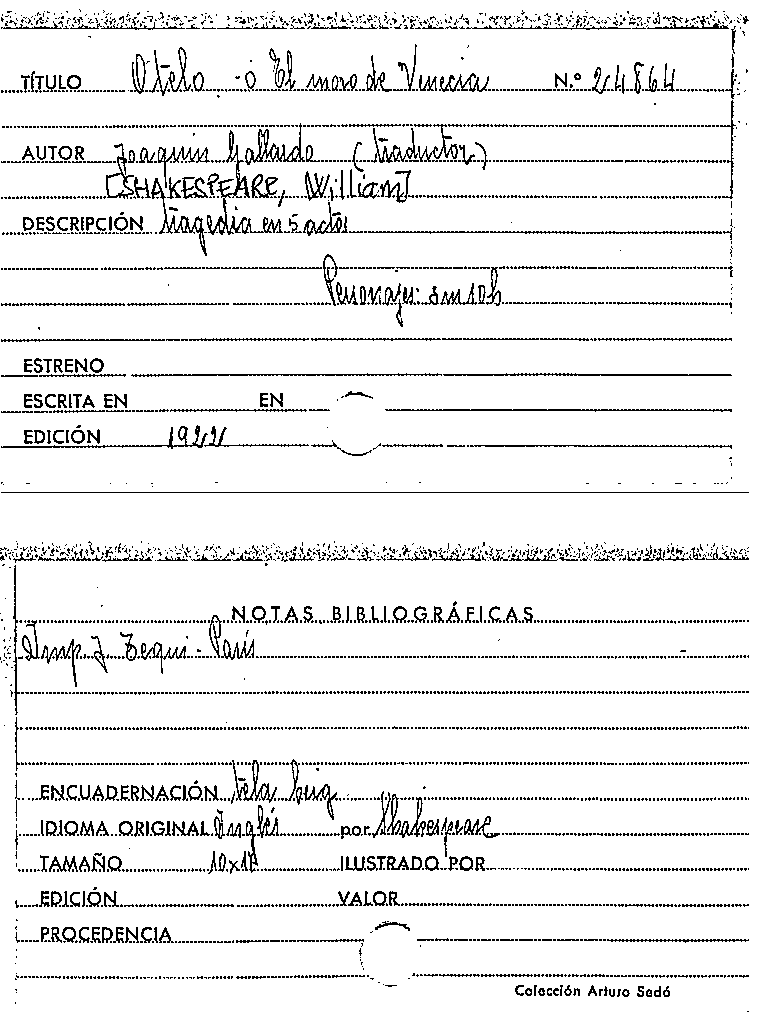 TÍTULO Otelo - ó El moro de Venecia N.º 24864
AUTOR Joaquin Gallardo (traductor)
[SHAKESPEARE, William]
DESCRIPCIÓN tragedia en 5 actos
Personajes: 3m 10h
ESTRENO
ESCRITA EN EN
EDICIÓN 1922
NOTAS BIBLIOGRÁFICAS
Imp. J. Tequi - París
ENCUADERNACIÓN tela beig
IDIOMA ORIGINAL Inglés por Shakespeare
TAMAÑO 10x17
ILUSTRADO POR
EDICIÓN VALOR
PROCEDENCIA
Colección Arturo Sedó